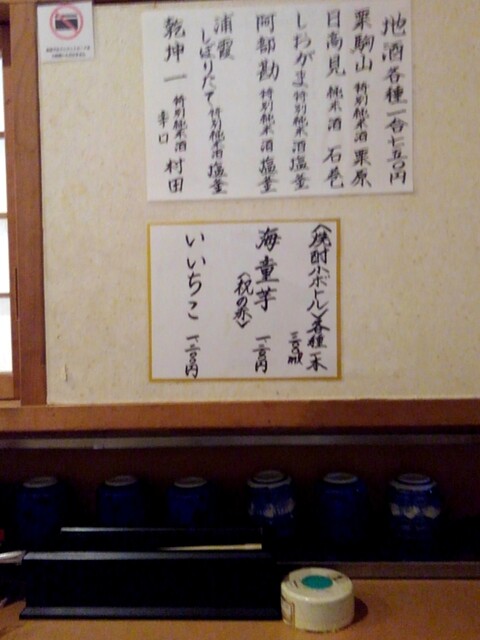 地酒各種一合七五〇円
栗駒山 特別純米酒 栗原
日高見 純米酒 石巻
しおがま 特別純米酒 塩釜
阿部勘 特別純米酒 塩釜
浦霞 しぼりたて 特別純米酒 塩釜
乾坤一 特別純米酒 辛口 村田
〈焼酎小ボトル〉各種一本
三〇〇ml
海童芋 一、二〇〇円
〈祝の赤〉
いいちこ 一、二〇〇円